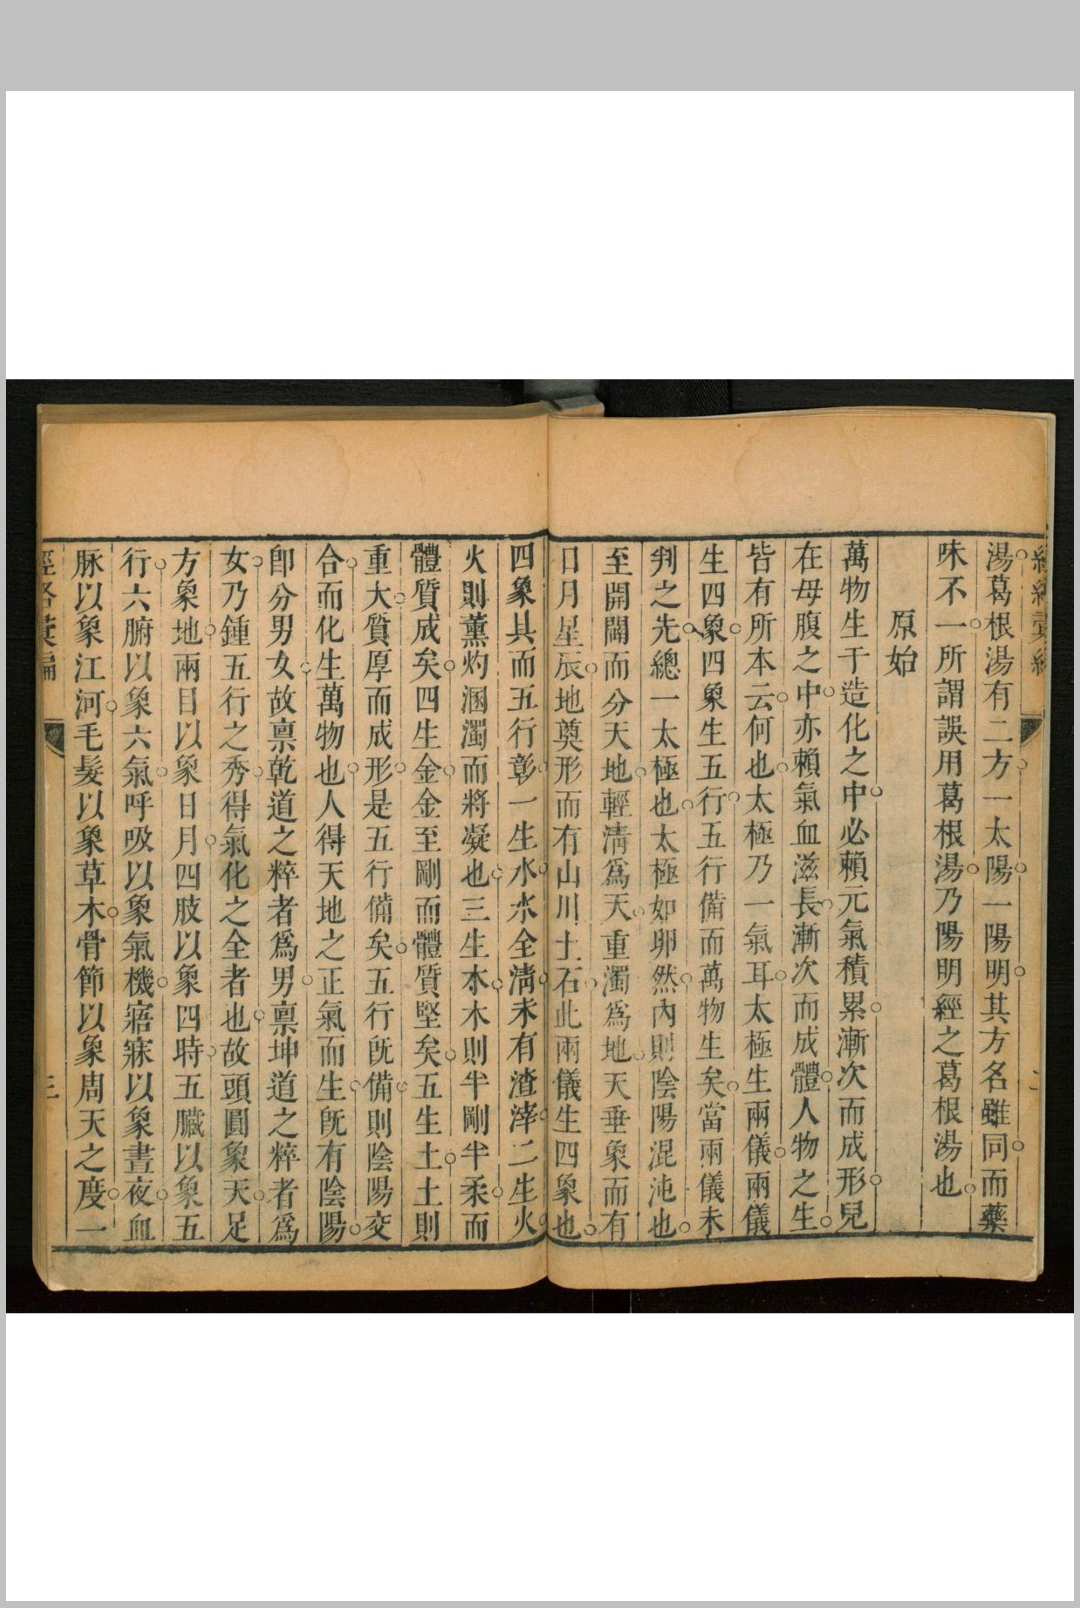 湯葛根湯有二方一太陽一陽明其方名雖同而藥
味不一所謂誤用葛根湯乃陽明經之葛根湯也
原始
萬物生于造化之中必賴元氣積累漸次而成形兒
在母腹之中亦賴氣血滋長漸次而成體人物之生
皆有所本云何也太極乃一氣耳太極生兩儀兩儀
生四象四象生五行五行備而萬物生矣當兩儀未
判之先總一太極也太極如卵然內則陰陽混沌也
至開闢而分天地輕清爲天重濁爲地天垂象而有
日月星辰地奠形而有山川土石此兩儀生四象也
四象具而五行彰一生水水全淸未有渣滓二生火
火則薰灼溷濁而將凝也三生木木則半剛半柔而
體質成矣四生金金至剛而體質堅矣五生土土則
重大質厚而成形是五行備矣五行旣備則陰陽交
合而化生萬物也人得天地之正氣而生旣有陰陽
卽分男女故禀乾道之粹者爲男禀坤道之粹者爲
女乃鍾五行之秀得氣化之全者也故頭圓象天足
方象地兩目以象日月四肢以象四時五臟以象五
行六腑以象六氣呼吸以象氣機寤寐以象晝夜血
脉以象江河毛髮以象草木骨節以象周天之度一
經絡彙編
三